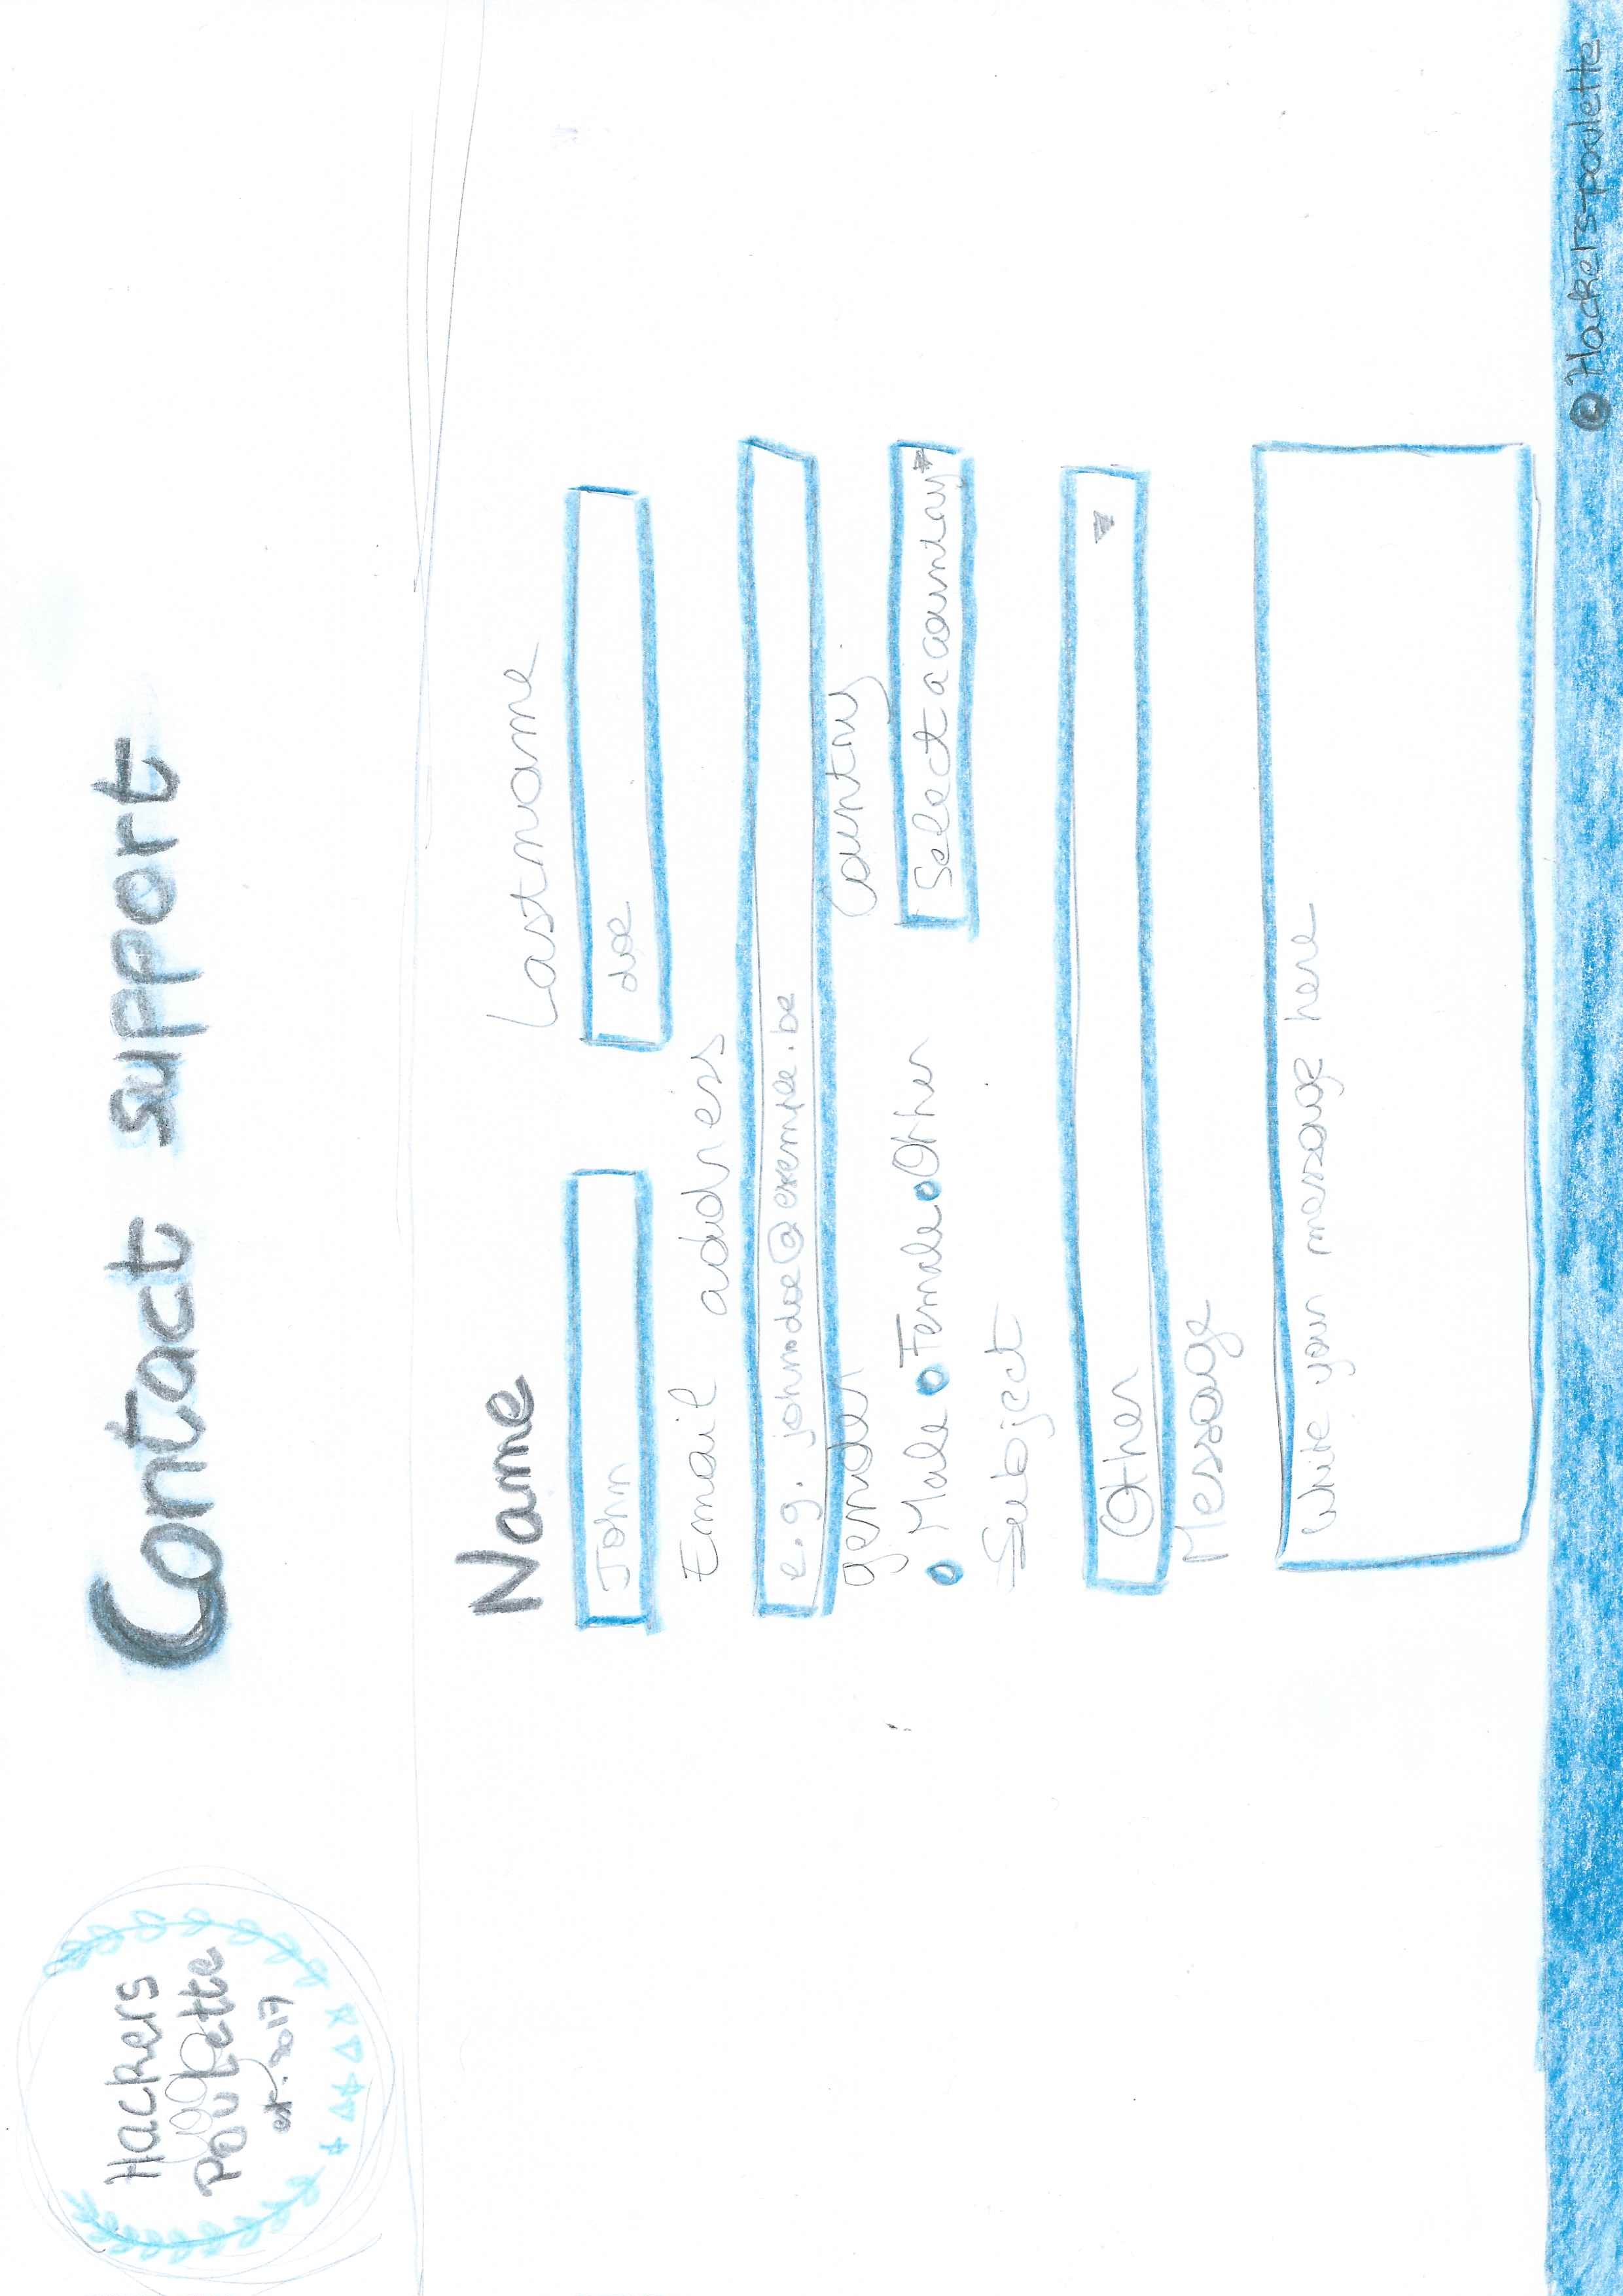 Hackers
Poulette
est. 2017
Contact support
Name
Lastname
John
doe
Email address
e.g. johndoe@exemple.be
gender
Country
Male Female Other
Select a country
Subject
Other
Message
Write your message here
© Hackers-poulette